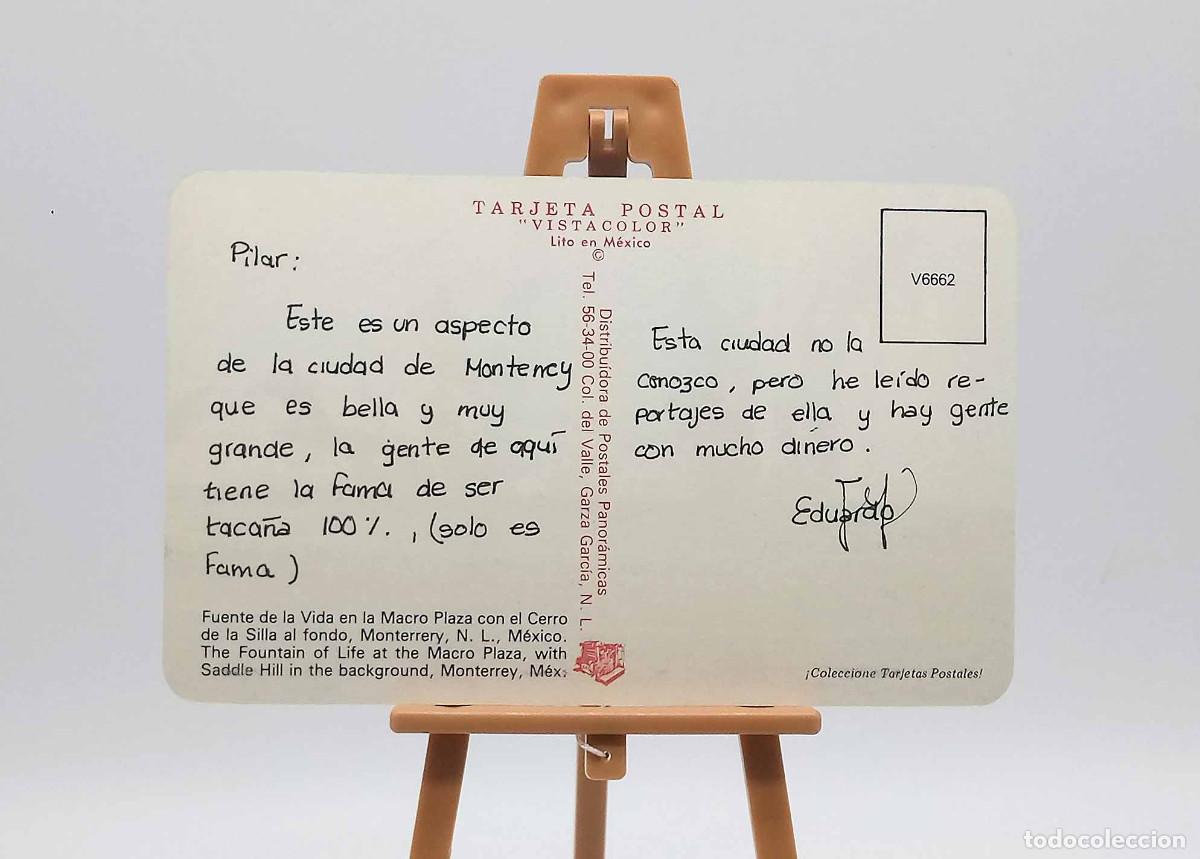 TARJETA POSTAL
"VISTACOLOR"
Lito en México
©
Pilar:
Este es un aspecto
de la ciudad de Monterrey
que es bella y muy
grande, la gente de aquí
tiene la fama de ser
tacaña 100%., (solo es
fama)
Fuente de la Vida en la Macro Plaza con el Cerro
de la Silla al fondo, Monterrery, N. L., México.
The Fountain of Life at the Macro Plaza, with
Saddle Hill in the background, Monterrey, Méx.
Distribuídora de Postales Panorámicas
Tel. 56-34-00 Col. del Valle, Garza García, N. L.
V6662
Esta ciudad no la
conozco, pero he leído re-
portajes de ella y hay gente
con mucho dinero.
Eduardo
¡Coleccione Tarjetas Postales!
todocoleccion